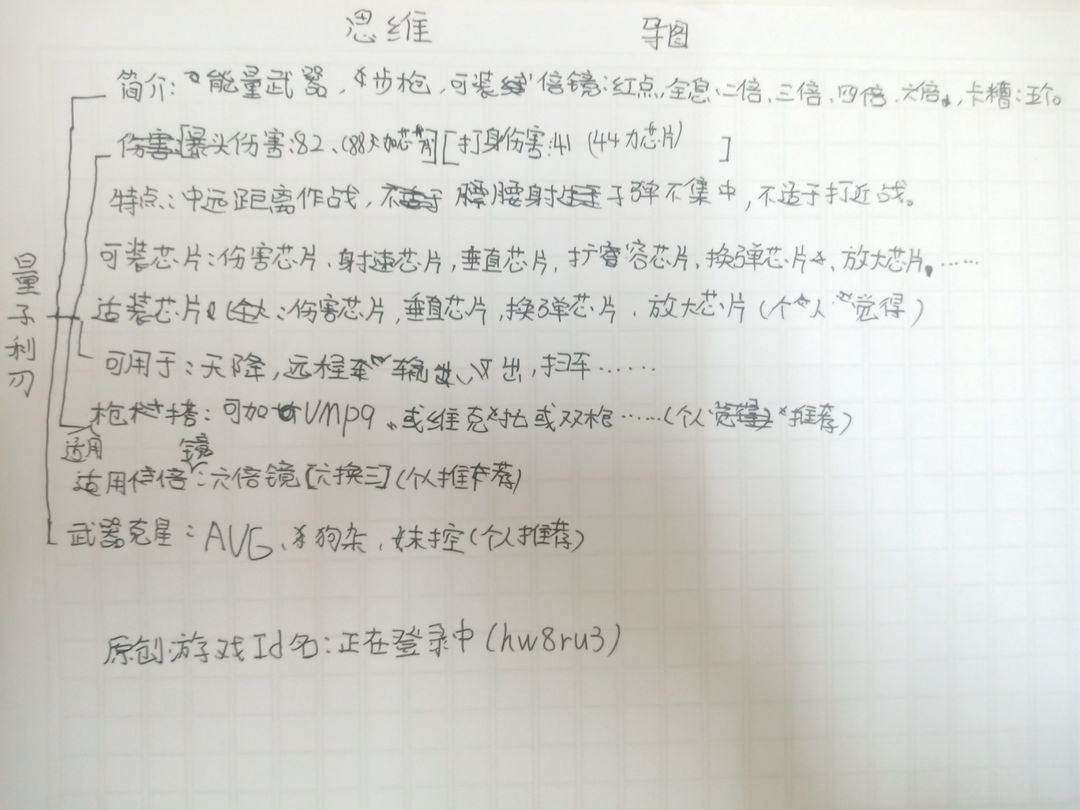 思维 导图
简介:能量武器,步枪,可装倍镜:红点,全息、二倍、三倍、四倍、六倍,卡槽:五个。
[暴头伤害:82、(88加芯片)][打身伤害:41(44力芯片)]
特点:中远距离作战,腰射子弹不集中,不适于打近战。
可装芯片:伤害芯片、射速芯片,垂直芯片,扩容芯片、换弹芯片、放大芯片,……
适装芯片:伤害芯片,垂直芯片,换弹芯片、放大芯片(个人觉得)
量子利刃
可用于:天降,远程输出,扫车……
枪搭:可加UMP9、或维克托或双枪……(个人推荐)
适用倍镜:六倍镜[六换三](个人推荐)
武器克星:AVG、狗杂、妹控(个人推荐)
原创:游戏Id名:正在登录中(hw8ru3)